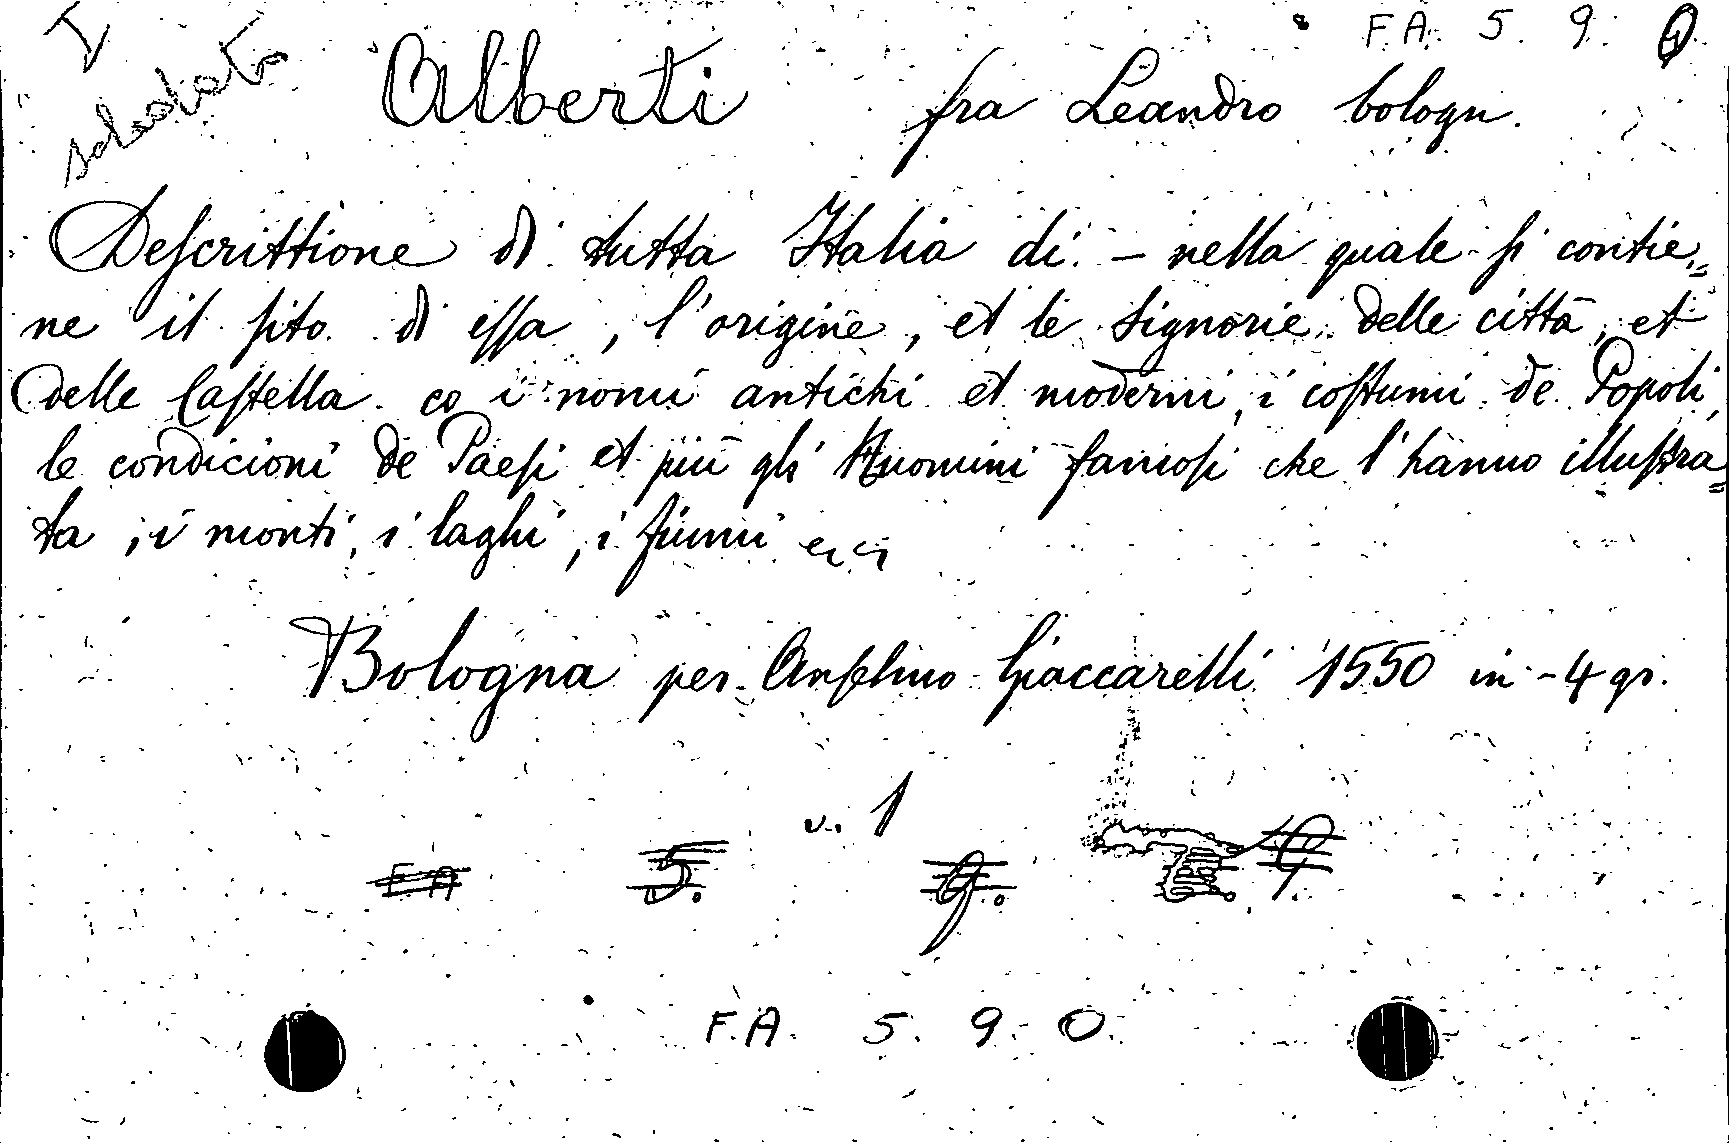 I
F.A. 5. 9. 0
schedato
Alberti fra Leandro bologn.
Descrittione di tutta Italia di - nella quale si contie=
ne il sito di essa, l'origine, et le Signorie delle città, et
delle Castella co i nomi antichi et moderni, i costumi de Popoli,
le condicioni de Paesi et più gli Huomini famosi che l'hanno illustra=
ta, i monti, i laghi, i fiumi ecc
Bologna per Anselmo Giaccarelli 1550 in-4 gr.
v. 1
FA 5. 9.
F.A. 5. 9. 0.